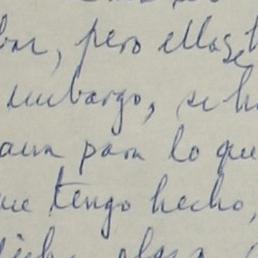 bar, pero ellos
embargo, se h
aun para lo que
ue tengo hecho,
obra